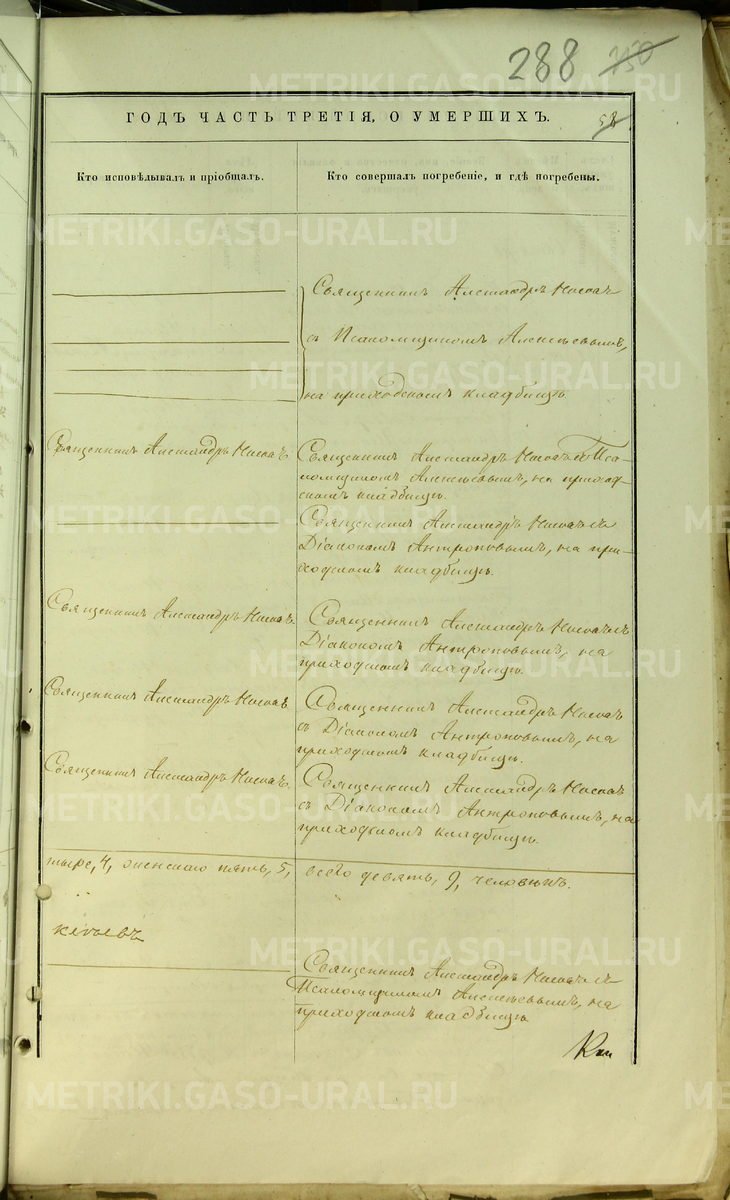 288 750
58
ГОДЪ ЧАСТЬ ТРЕТІЯ, О УМЕРШИХЪ.
Кто исповѣдывалъ и пріобщалъ.
Кто совершалъ погребеніе, и гдѣ погребены.
Священникъ Александръ
съ Псаломщикомъ Алексѣевымъ,
на приходскомъ кладбищѣ.
Священникъ Александръ
Священникъ Александръ Пса-
ломщикомъ Алексѣевымъ, на приход-
скомъ кладбищѣ.
Священникъ Александръ съ
Діакономъ Антроповымъ, на при-
ходскомъ кладбищѣ.
Священникъ Александръ
Священникъ Александръ съ
Діакономъ Антроповымъ, на
приходскомъ кладбищѣ.
Священникъ Александръ
Священникъ Александръ
съ Діакономъ Антроповымъ, на
приходскомъ кладбищѣ.
Священникъ Александръ
Священникъ Александръ
съ Діакономъ Антроповымъ, на
приходскомъ кладбищѣ.
тыре, 4, женскаго пять, 5, всего девять, 9, человѣкъ.
Священникъ Александръ съ
Псаломщикомъ Алексѣевымъ, на
приходскомъ кладбищѣ
METRIKI.GASO-URAL.RU